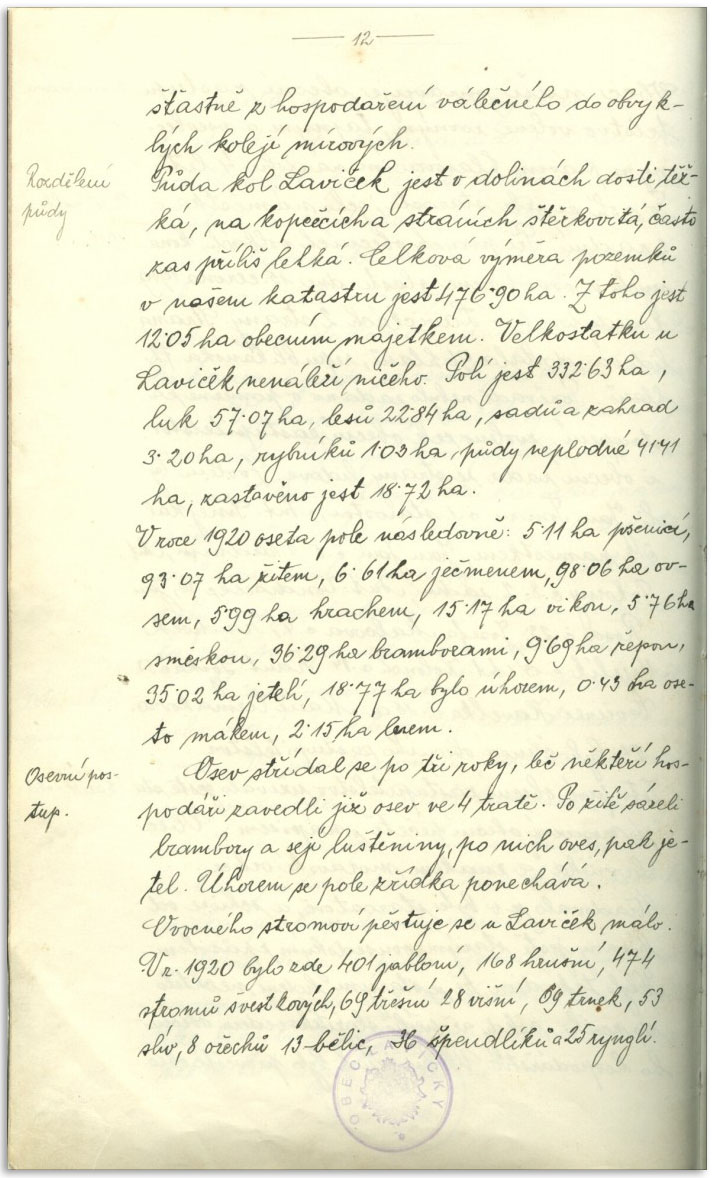 12
šťastně z hospodaření válečného do obvyk-
lých kolejí mírových.
Rozdělení
půdy
Půda kol Laviček jest v dolinách dosti těž-
ká, na kopečcích a stráních štěrkovitá, často
zas příliš lehká. Celková výměra pozemků
v našem katastru jest 476·90 ha. Z toho jest
12·05 ha obecním majetkem. Velkostatku u
Laviček nenáleží ničeho. Polí jest 332·63 ha,
luk 57·07 ha, lesů 22·84 ha, sadů a zahrad
3·20 ha, rybníků 1·03 ha, půdy neplodné 41·41
ha, zastavěno jest 18·72 ha.
V roce 1920 oseta pole následovně: 5·11 ha pšenicí,
93·07 ha žitem, 6·61 ha ječmenem, 98·06 ha ov-
sem, 5·99 ha hrachem, 15·17 ha vikou, 5·76 ha
směskou, 36·29 ha bramborami, 9·69 ha řepou,
35·02 ha jetelí, 18·77 ha bylo úhorem, 0·43 ha ose-
to mákem, 2·15 ha lnem.
Osevní pos-
tup.
Osev střídal se po tři roky, leč někteří hos-
podáři zavedli již osev ve 4 tratě. Po žitě sázeli
brambory a sejí luštěniny, po nich oves, pak je-
tel. Úhorem se pole zřídka ponechává.
Ovocného stromoví pěstuje se u Laviček málo.
V r. 1920 bylo zde 401 jabloní, 168 hrušní, 474
stromů švestkových, 69 třešní 28 višní, 69 trnek, 53
slív, 8 ořechů 13 bělic, 36 špendlíků a 25 rynglí.
OBEC LAVIČKY